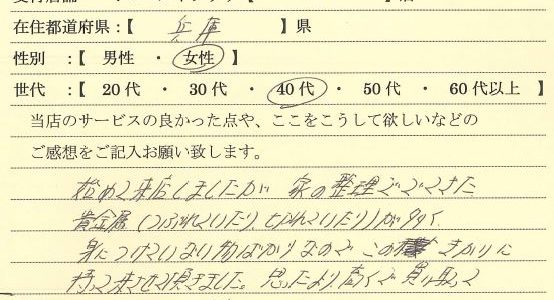 在住都道府県：【 兵庫 】県
性別 ：【 男性 ・ 女性 】
世代 ：【 20代 ・ 30代 ・ 40代 ・ 50代 ・ 60代以上 】
当店のサービスの良かった点や、ここをこうして欲しいなどの
ご感想をご記入お願い致します。
始めて来店しましたが 家の整理ででてきた
貴金属(つぶれていたり、とれていたり)が多くて
身につけていない物ばかりなので この機会きっかりに
持って来させて頂きました。思ったより高くで買い取って